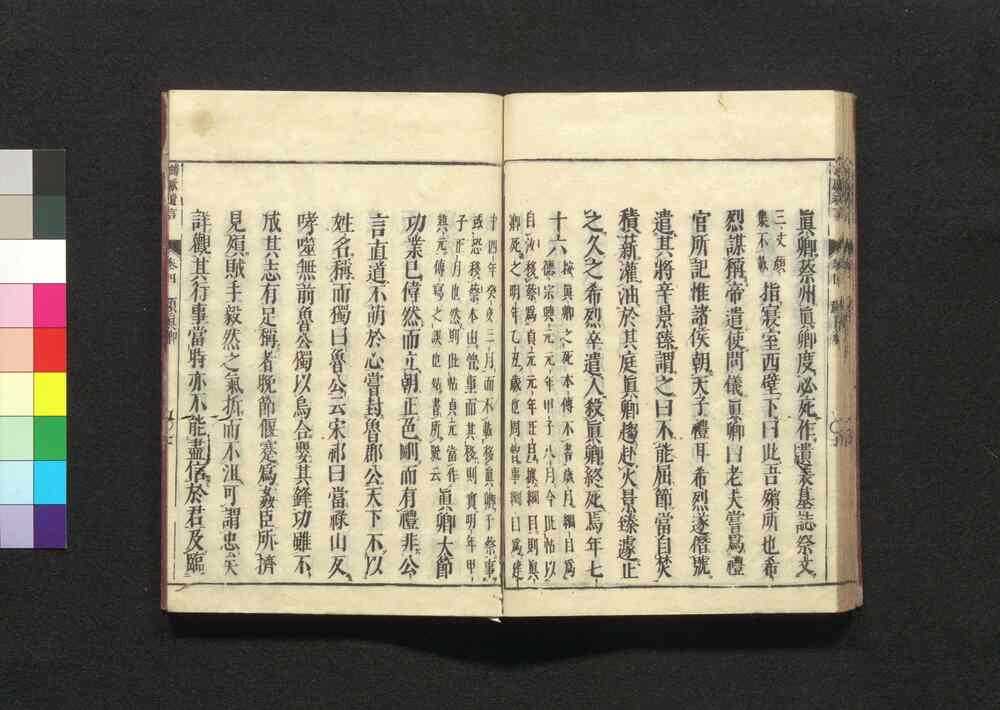 眞卿蔡州眞卿度必死作遺表墓誌祭文
三文顏
集不載
指寢室西壁下曰此吾殯所也希
烈謀稱帝遣使問儀眞卿曰老夫嘗爲禮
官所記惟諸侯朝天子禮耳希烈遂僭號
遣其將辛景臻謂之曰不能屈節當自焚
積薪灌油於其庭眞卿趨赴火景臻遽止
之久之希烈卒遣人殺眞卿終死焉年七
十六
按眞卿之死本傳不書歲月綱目爲
德宗興元元年甲子八月今此帖以
自汝移蔡爲貞元元年正月據綱目則眞
卿死之明年乙丑歲也
十四年癸亥三月而不
或恐移蔡本
子正月也然則此帖貞元當作
興元傳寫之誤也姑書所疑云
眞卿大節
功業已偉然而立朝正色剛而有禮非公
言直道不萌於心嘗封魯郡公天下不以
姓名稱而獨曰魯公云宋祁曰當祿山反
哮噬無前魯公獨以烏合嬰其鋒功雖不
成其志有足稱者晚節偃蹇爲姦臣所擠
見殞賊手毅然之氣折而不沮可謂忠矣
詳觀其行事當時亦不能盡信於君及臨
卷四
顏眞卿